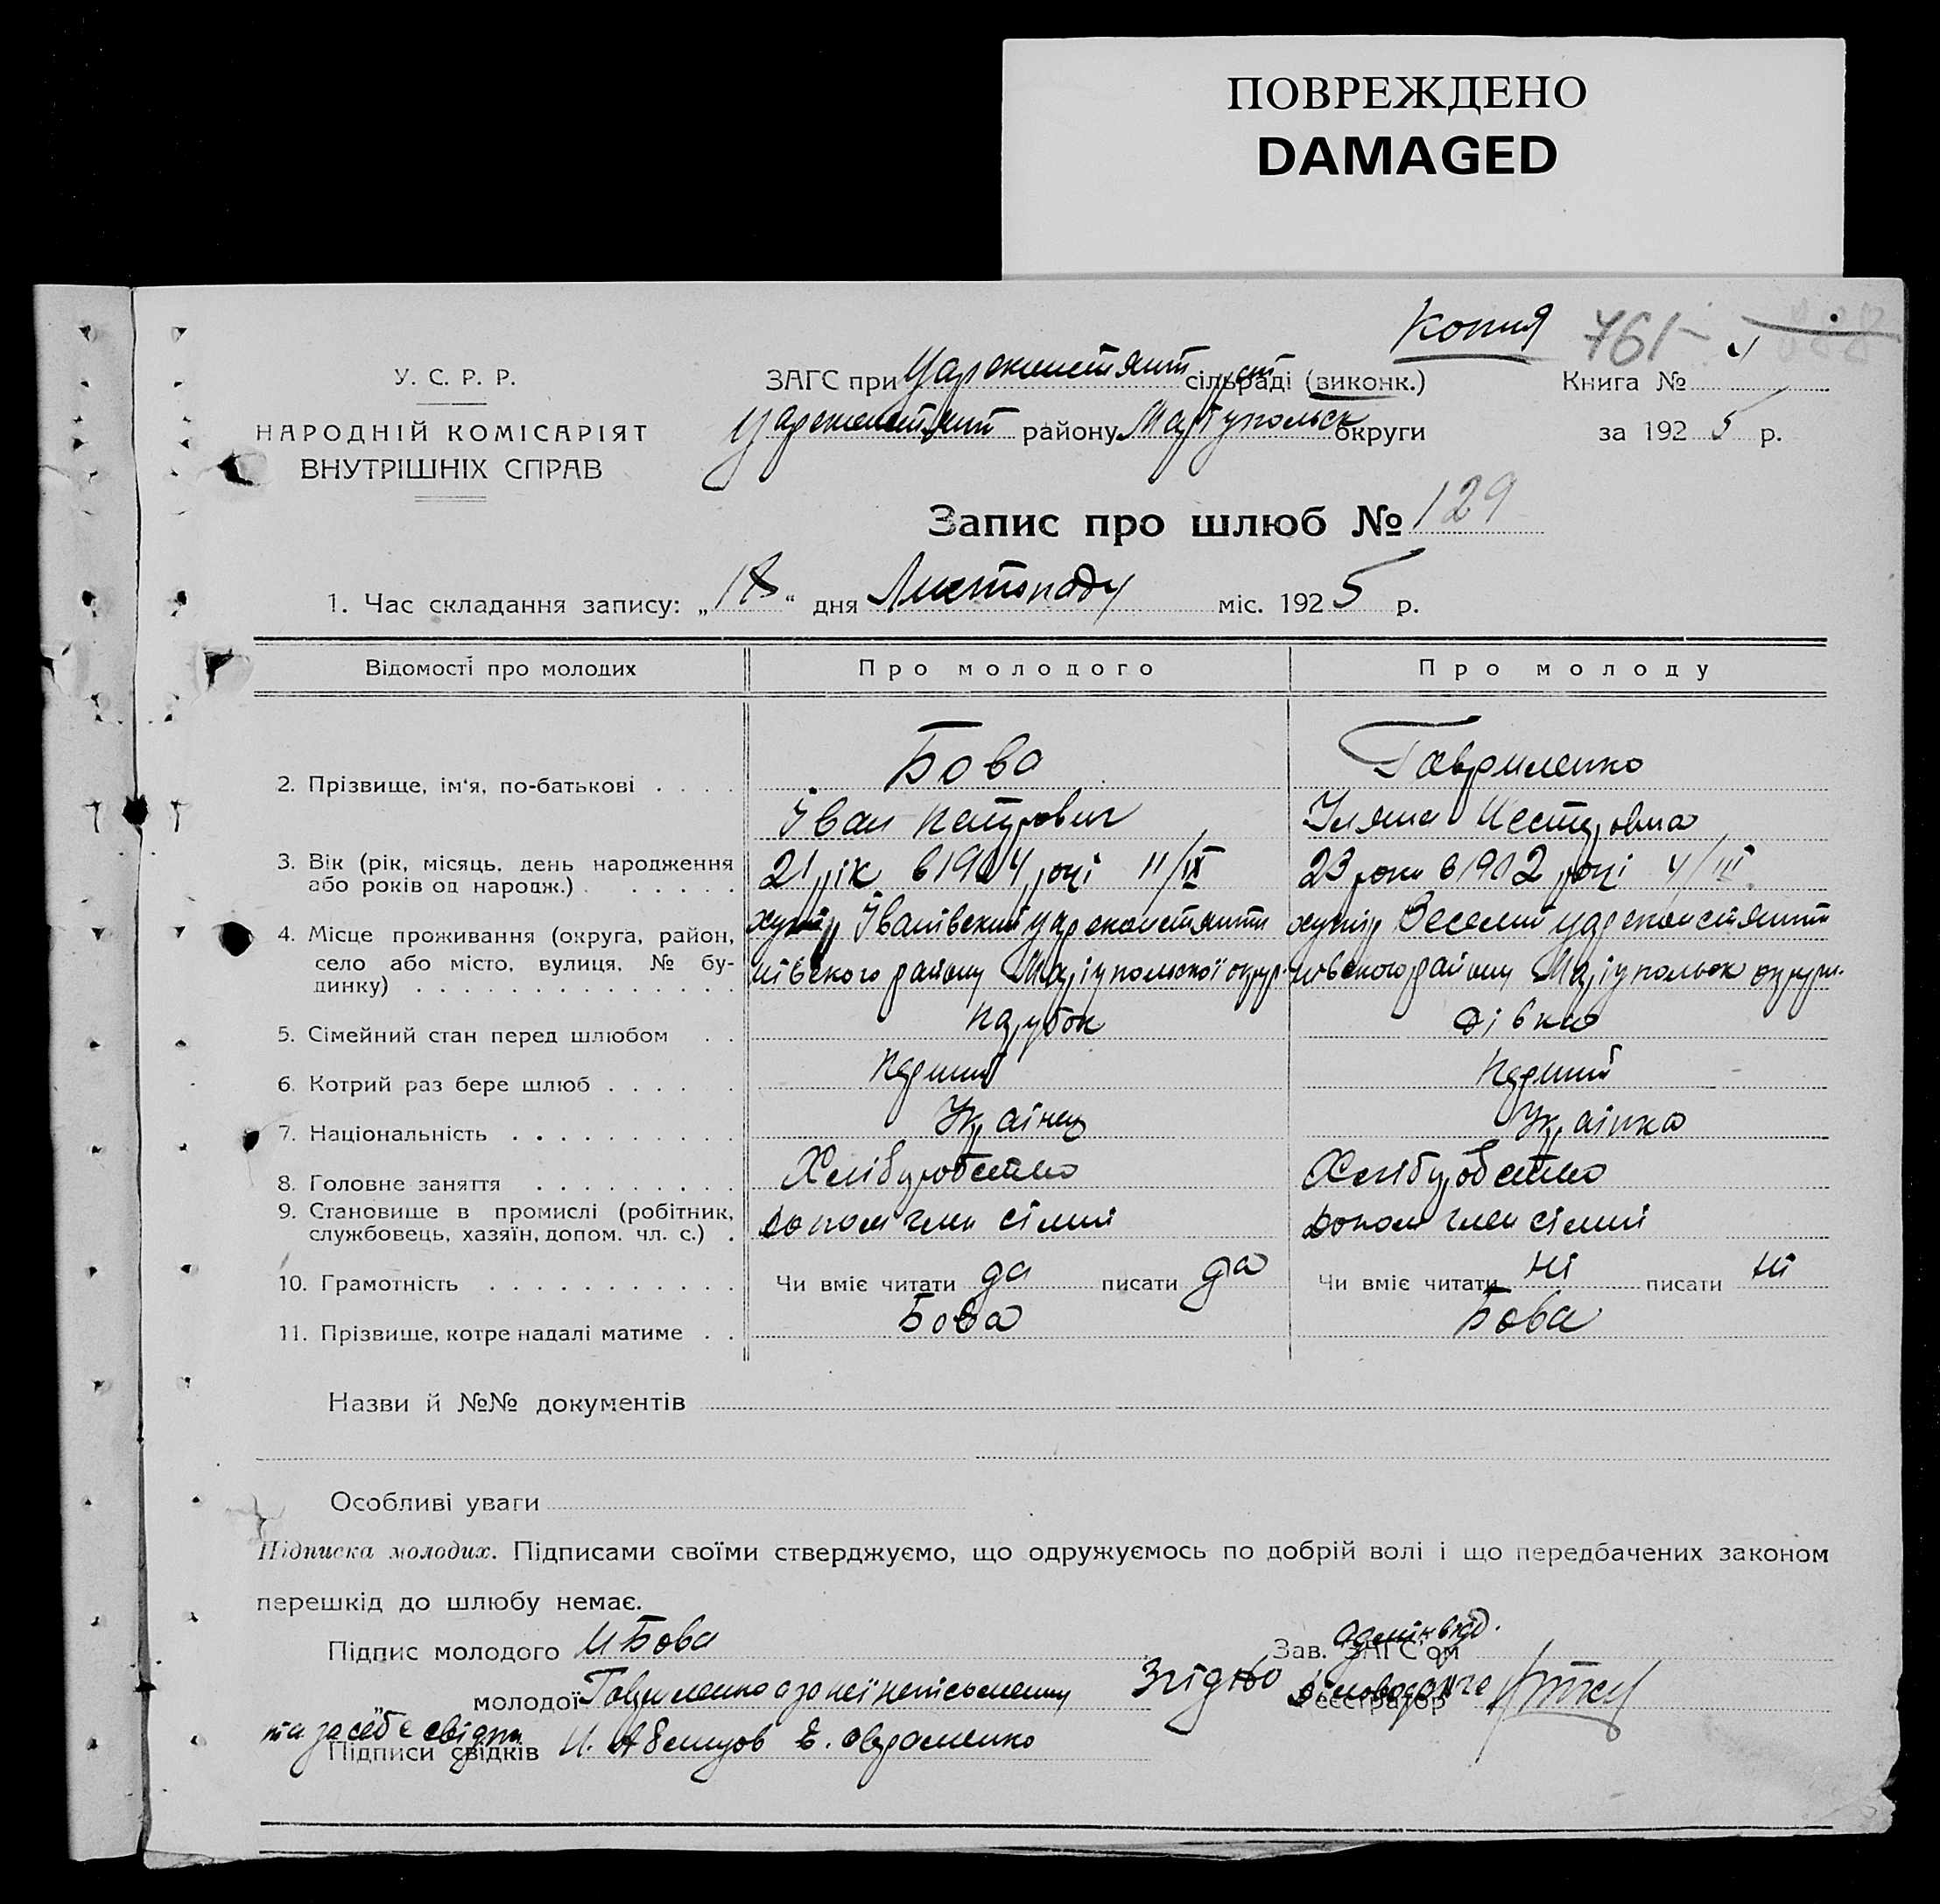 ПОВРЕЖДЕНО
DAMAGED
Копия 761
У. С. Р. Р.
НАРОДНІЙ КОМІСАРІЯТ
ВНУТРІШНІХ СПРАВ
ЗАГС при Цареконстянт сільраді (виконк.)
Цареконстянт району Маріупольск округи
Книга №
за 1925 р.
Запис про шлюб № 129
1. Час складання запису: „ “ дня Листопаду міс. 1925 р.
Відомості про молодих Про молодого Про молоду
2. Прізвище, ім‘я, по-батькові Бова Гавриленко
Іван Петрович Уляна Несторовна
3. Вік (рік, місяць, день народження або років од народж.) 21 рік в 1904 році 11/IX 23 роки в 1902 році 4/III
4. Місце проживання (округа, район, село або місто, вулиця, № будинку) хутір Іванівский Цареконстянтинівского району Маріупольскої округ. хутір Веселий Цареконстянтинівского району Маріупольск округи.
5. Сімейний стан перед шлюбом парубок дівка
6. Котрий раз бере шлюб перший перший
7. Національність Українец Українка
8. Головне заняття Хліборобство Хліборобство
9. Становище в промислі (робітник, службовець, хазяїн, допом. чл. с.) допом член сімьї допом член сімьї
10. Грамотність Чи вміє читати да писати да Чи вміє читати ні писати ні
11. Прізвище, котре надалі матиме Бова Бова
Назви й №№ документів
Особливі уваги
Підписка молодих. Підписами своїми стверджуємо, що одружуємось по добрій волі і що передбачених законом
перешкід до шлюбу немає.
Підпис молодого И Бова
Зав. ЗАГС'ом
адмінвід.
„ молодої Гавриленко а за неї неписьменну
Згідно Реєстратор
та за себе свідки
Підписи свідків Е. Авраменко